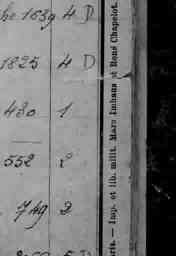 be 1639 4 D
1825 4 D
430 1
552 2
749 2
ris. — Imp. et lib. milit. Marc Imhaus et René Chapelot.